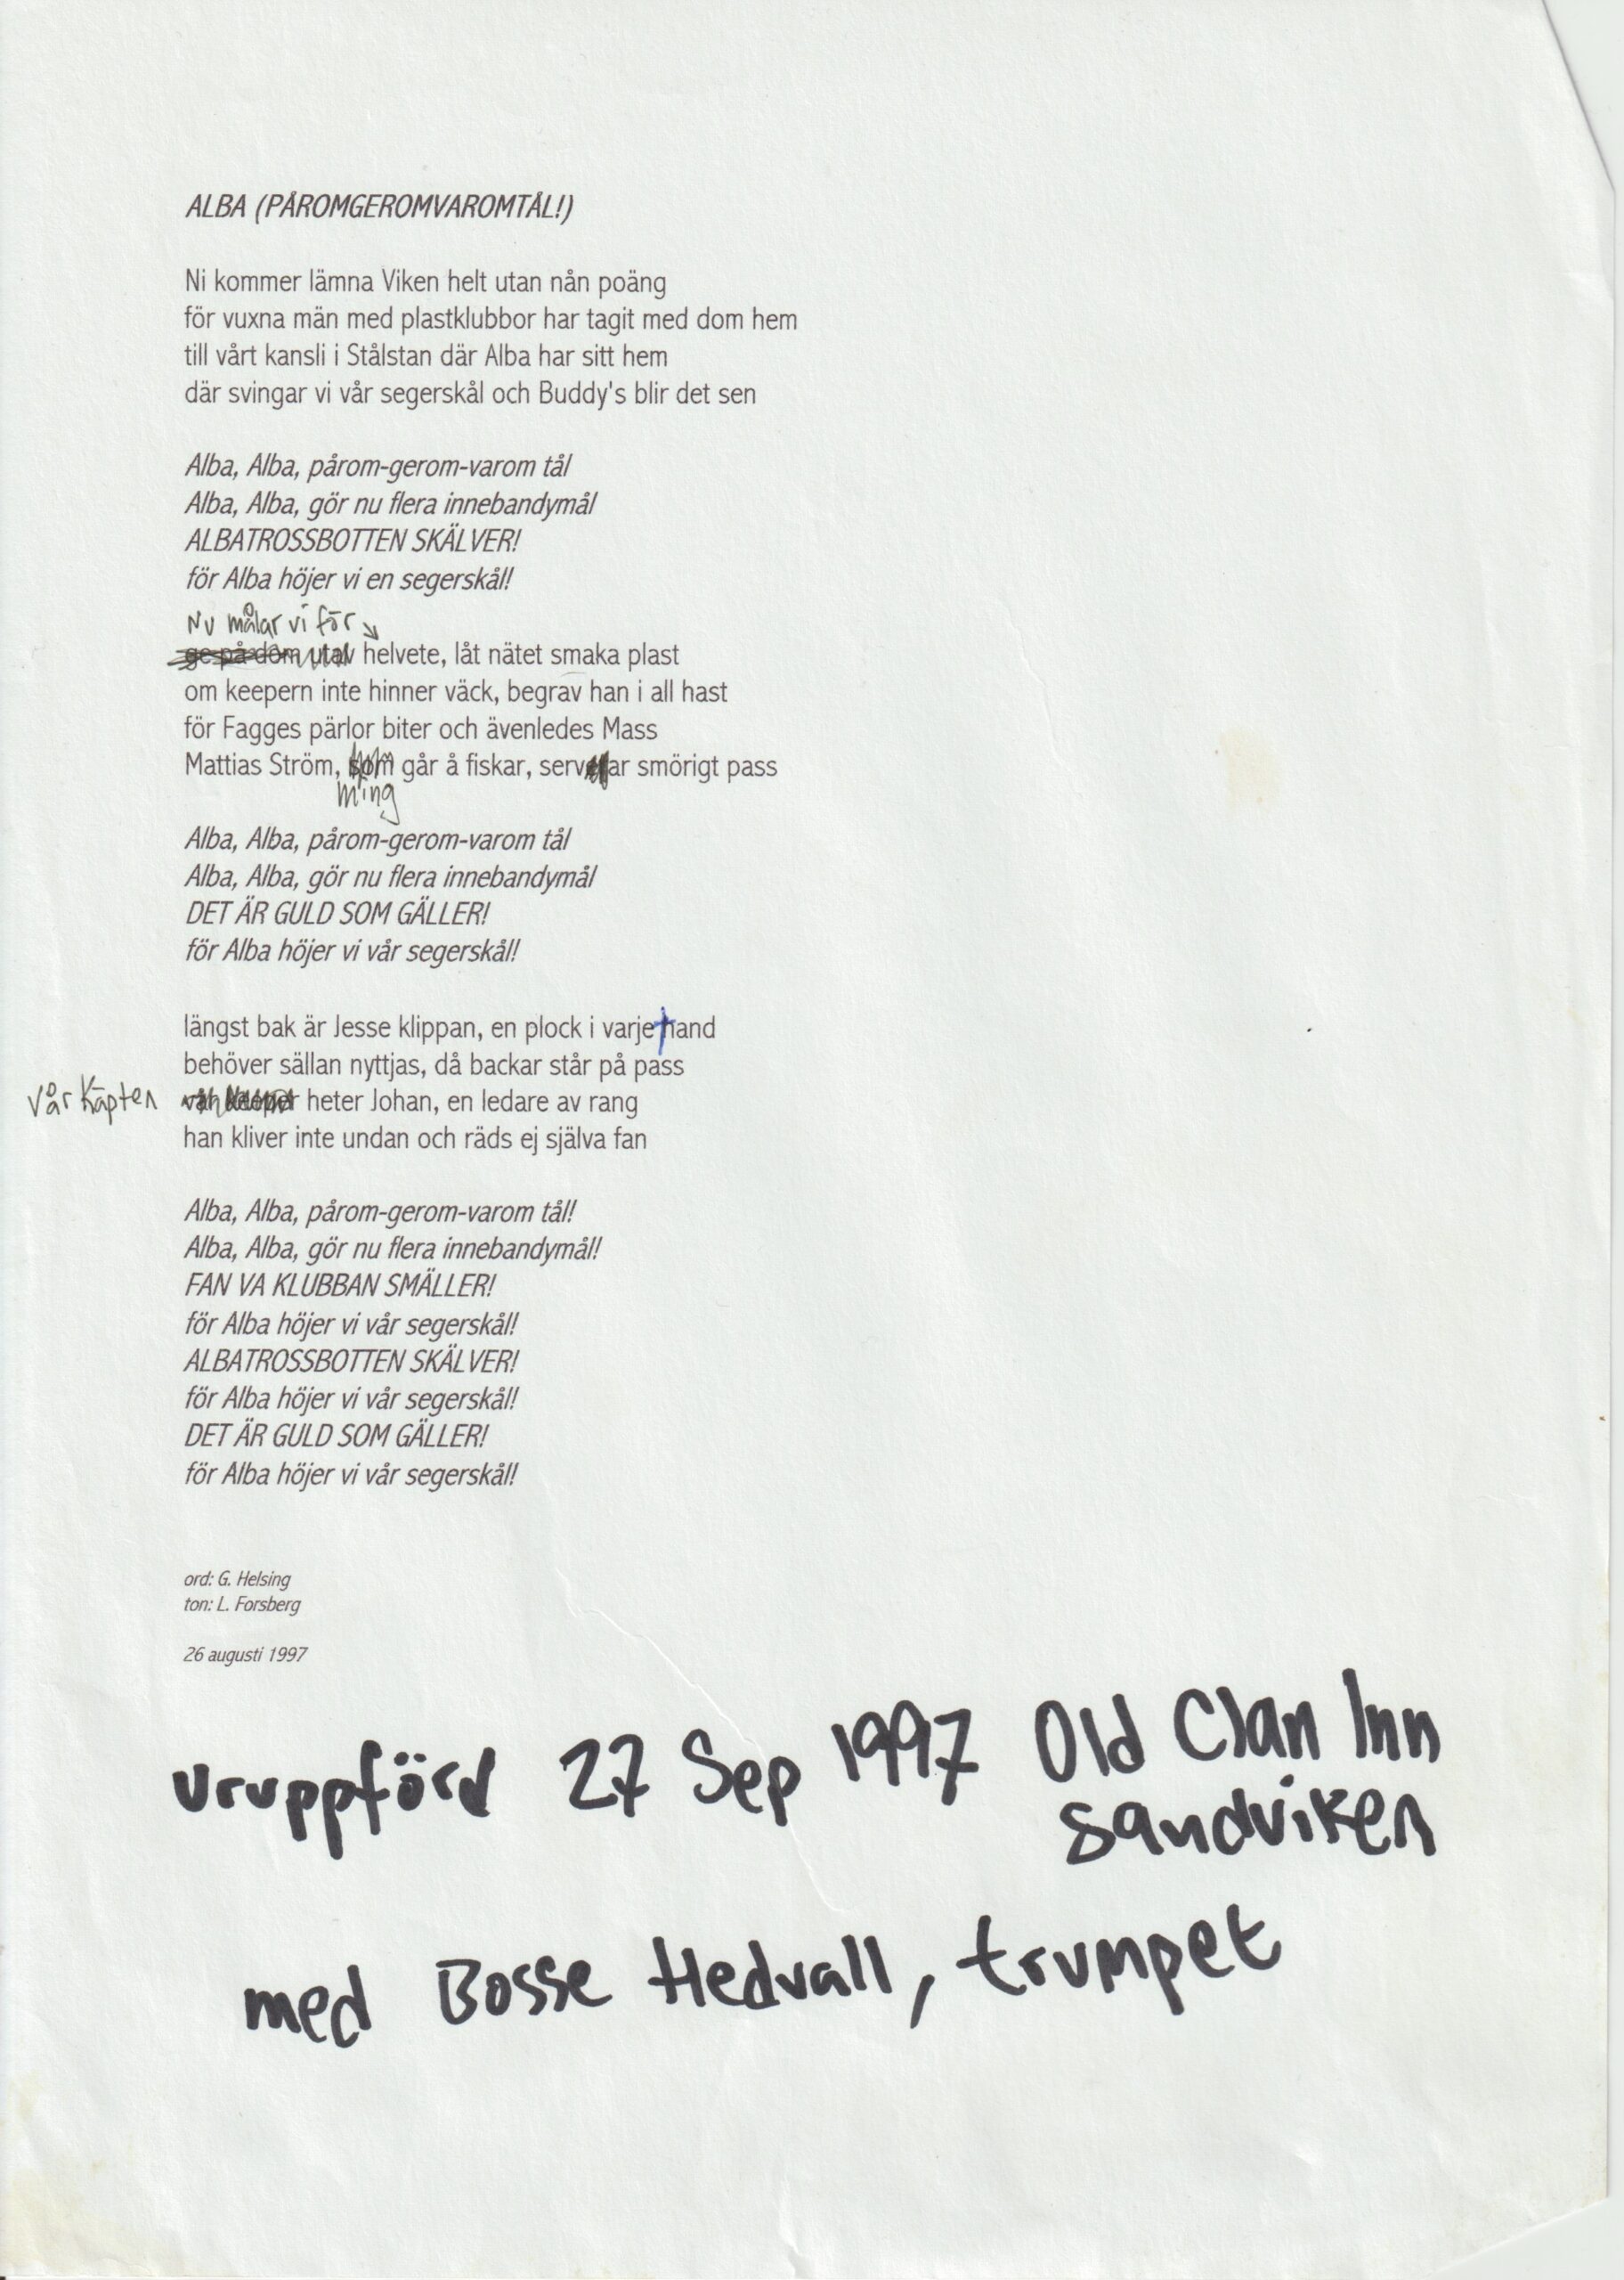 ALBA (PÅROMGEROMVAROMTÅL!)
Ni kommer lämna Viken helt utan nån poäng
för vuxna män med plastklubbor har tagit med dom hem
till vårt kansli i Stålstan där Alba har sitt hem
där svingar vi vår segerskål och Buddy's blir det sen
Alba, Alba, pårom-gerom-varom tål
Alba, Alba, gör nu flera innebandymål
ALBATROSSBOTTEN SKÄLVER!
för Alba höjer vi en segerskål!
Nu målar vi för
ge på dom utav helvete, låt nätet smaka plast
om keepern inte hinner väck, begrav han i all hast
för Fagges pärlor biter och ävenledes Mass
Mattias Ström, som går å fiskar, servar smörigt pass
ming
Alba, Alba, pårom-gerom-varom tål
Alba, Alba, gör nu flera innebandymål
DET ÄR GULD SOM GÄLLER!
för Alba höjer vi vår segerskål!
längst bak är Jesse klippan, en plock i varje hand
behöver sällan nyttjas, då backar står på pass
vår Käpten vår keeper heter Johan, en ledare av rang
han kliver inte undan och räds ej själva fan
Alba, Alba, pårom-gerom-varom tål!
Alba, Alba, gör nu flera innebandymål!
FAN VA KLUBBAN SMÄLLER!
för Alba höjer vi vår segerskål!
ALBATROSSBOTTEN SKÄLVER!
för Alba höjer vi vår segerskål!
DET ÄR GULD SOM GÄLLER!
för Alba höjer vi vår segerskål!
ord: G. Helsing
ton: L. Forsberg
26 augusti 1997
uruppförd 27 Sep 1997 Old Clan Inn
Sandviken
med Bosse Hedvall, trumpet